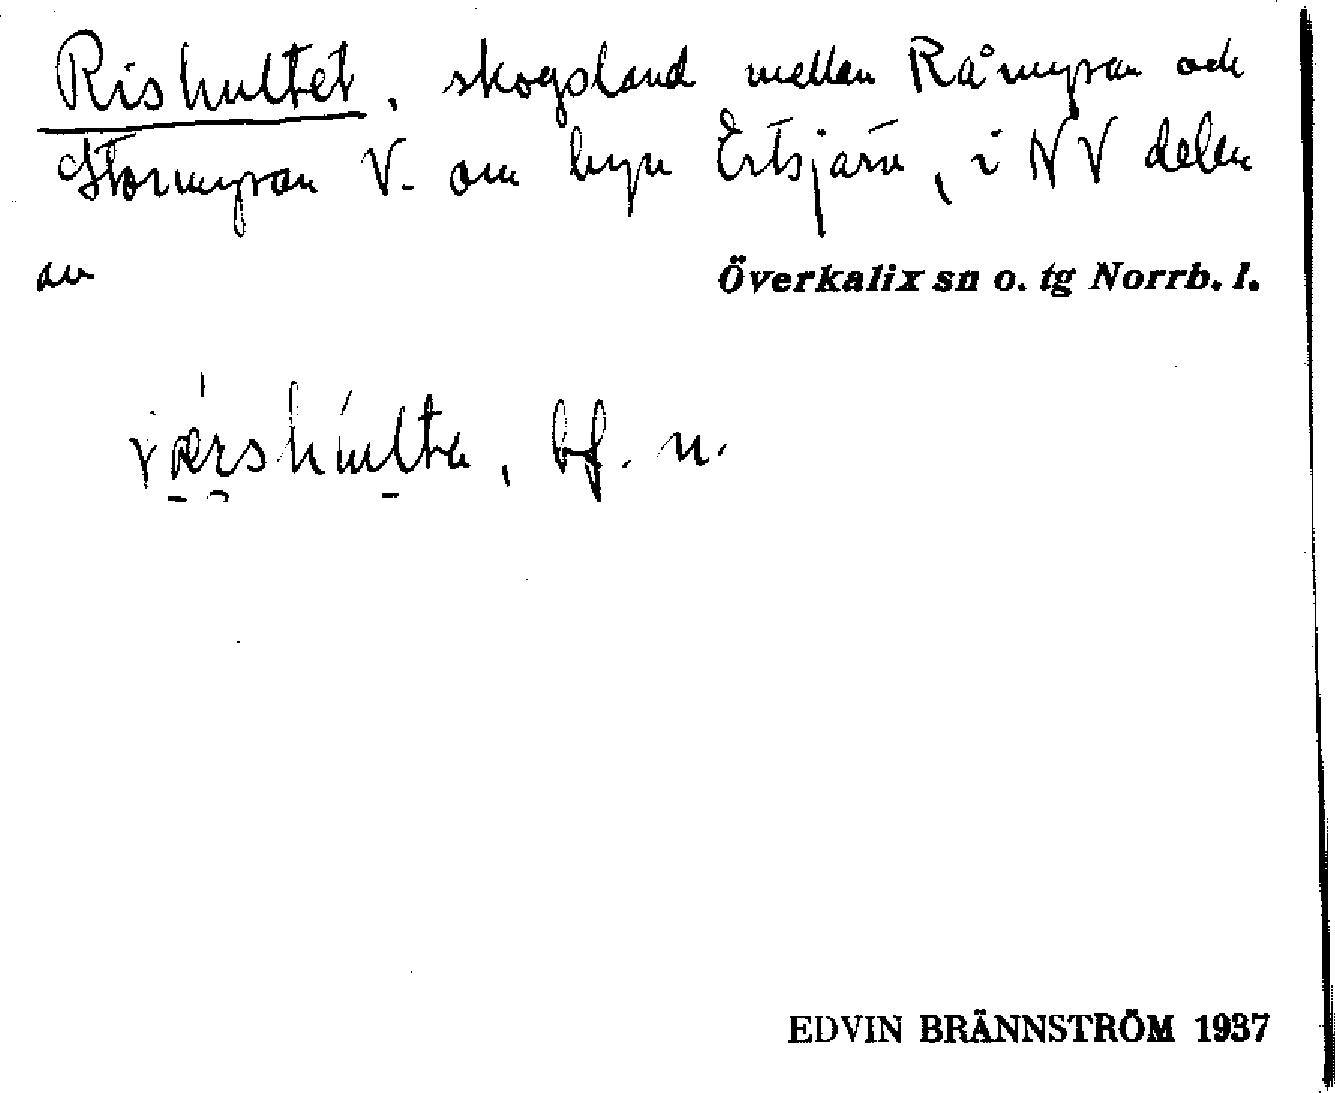 Rishultet, skogsland mellan Råmyran och
Stormyran V. om byn Ertsjärv, i NV delen
av Överkalix sn o. tg Norrb. l.
bf. n.
EDVIN BRÄNNSTRÖM 1937